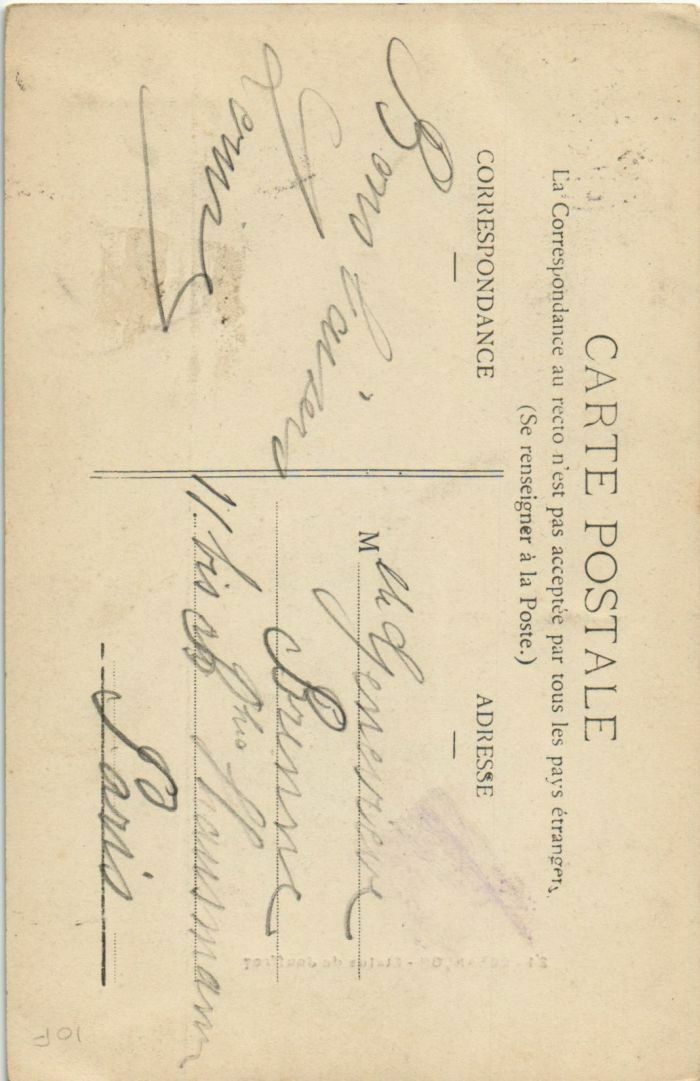 CARTE POSTALE
La Correspondance au recto n'est pas acceptée par tous les pays étrangers.
(Se renseigner à la Poste.)
CORRESPONDANCE
Bons baisers
ADRESSE
Mlle Geneviève
Brenne
11 bis Haussmann
Paris
10F